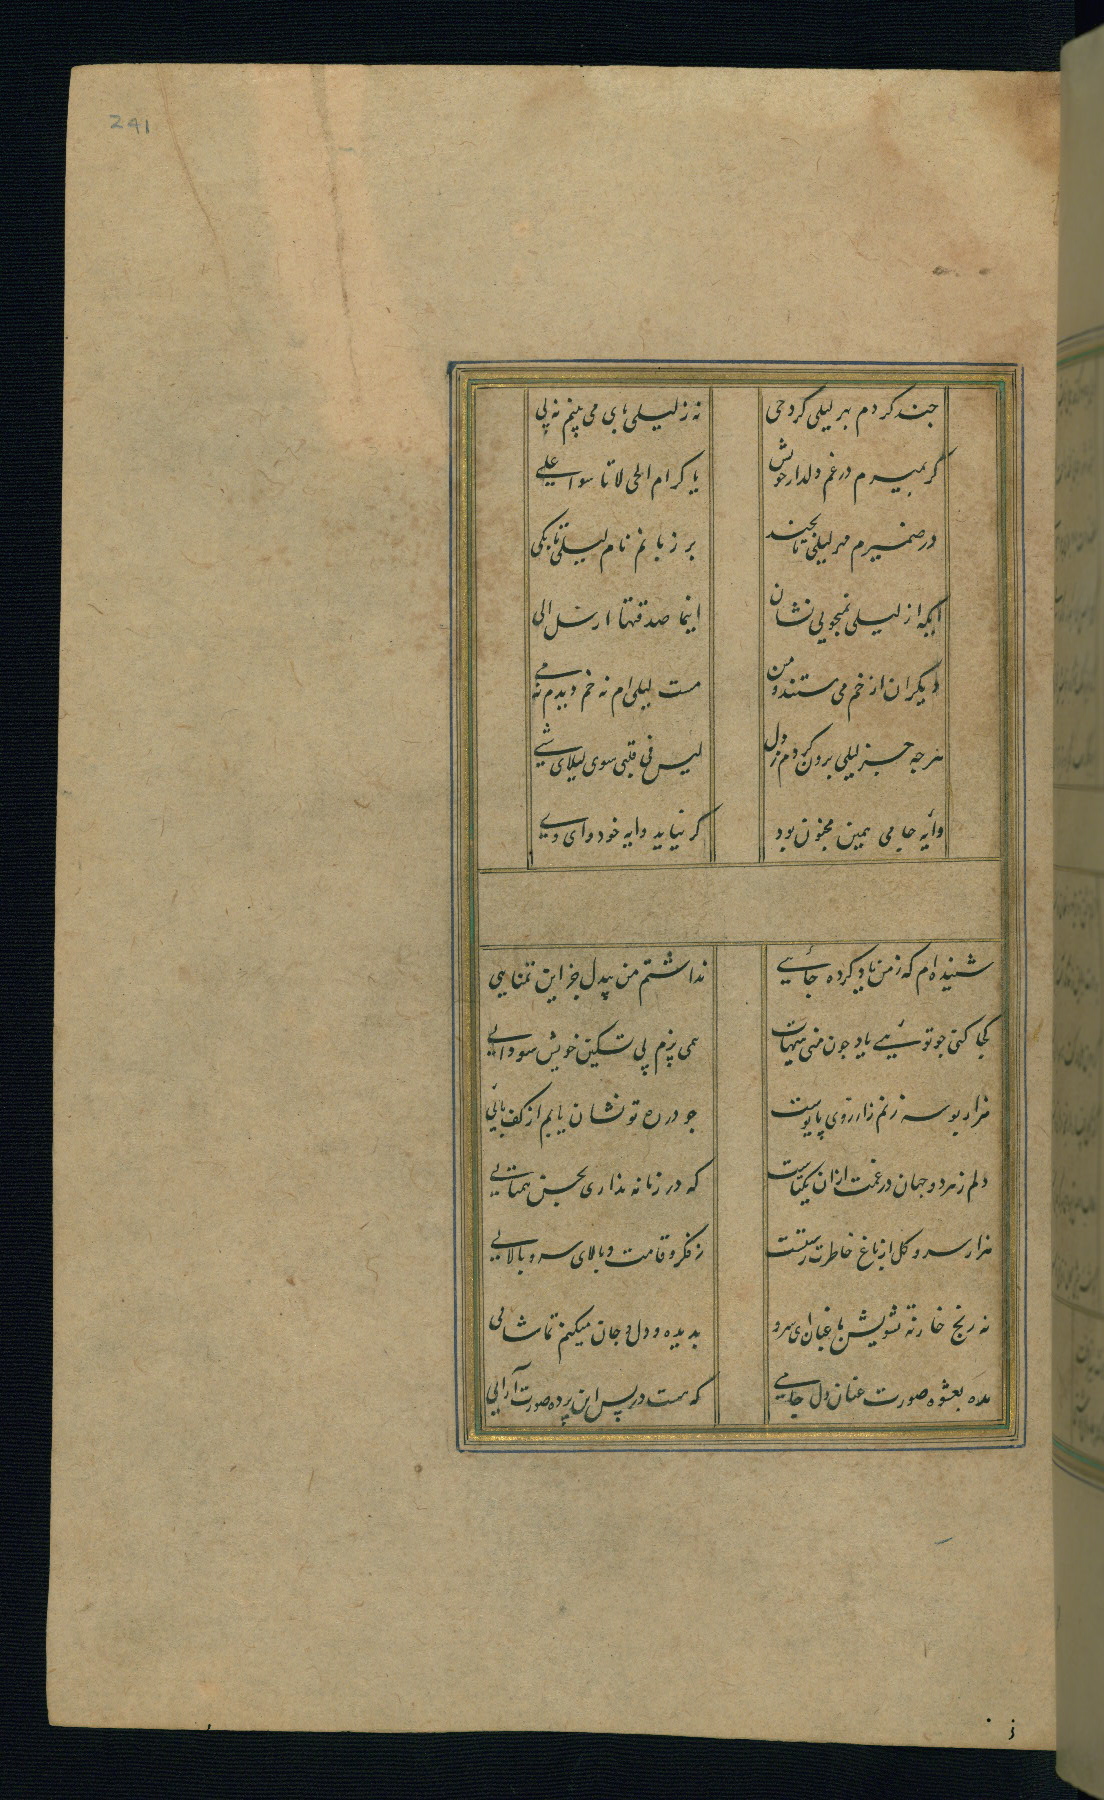 241
چند کردم بهر لیلی کرد حی
نه ز لیلی های می بینم نه پی
گر بمیرم در غم دلدار خویش
یا کرام الحی لا تاسوا علی
در ضمیرم مهر لیلی تا بچند
بر زبانم نام لیلی تا بکی
ایکه از لیلی نمیجویی نشان
انما صدقتها ارسل الی
دیگران از خم می مستند و من
مست لیلی ام نه خم دیدم نه می
هر چه جز لیلی برون کردم ز دل
لیس فی قلبی سوی لیلای شی
وایه جامی همین مجنون بود
گر نیابد وایه خود وای وی
شنیده ام که ز من یاد کرده جایی
نداشتم من بیدل جز این تمنایی
کجا کنی چو تو شیی یاد چون منی هیهات
همی پزم پی تسکین خویش سودایی
هزار بوسه زنم ز آرزوی پابوست
چو در ره تو نشان یابم از کف پایی
دلم ز هر دو جهان در غمت از آن یکتاست
که در زمانه نداری بحسن همتایی
هزار سرو و گل از باغ خاطرت رستست
ز فکر و قامت و بالای سرو بالایی
نه رنج خار نه تشویش باغبان ای سرو
بدیده و دل و جان میکنم تماشایی
مده بعشوه صورت عنان دل جامی
که هست در پس این پرده صورت آرایی